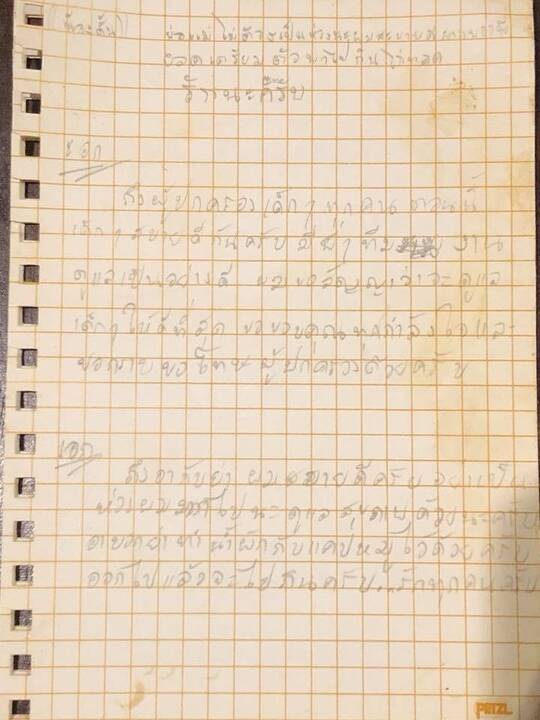 (น้องตั้น) พ่อแม่ ไม่ต้องเป็นห่วงนะผมสบายดี
ยอด เตรียมตัวพาไปกินไก่ทอด
รักนะครับ
เอก
ถึงผู้ปกครองเด็กๆ ทุกคน ตอนนี้
เด็กๆ สบายดีกันครับ มีพี่ๆ ทีม งาน
ดูแลเป็นอย่างดี ผมขอสัญญาว่าจะดูแล
เด็กๆ ให้ดีที่สุด ขอขอบคุณทุกกำลังใจและ
ขอกราบขอโทษผู้ปกครองด้วยครับ
เอก
ถึงอากับย่า ผมสบายดีครับ อย่าเป็น
ห่วงผมมากไปนะ ดูแลสุขภาพด้วยนะครับ
อาบอกย่าทำน้ำผักกับแคปหมูไว้ด้วยครับ
ออกไปแล้วจะไปกินครับ..รักทุกคนครับ
PETZL